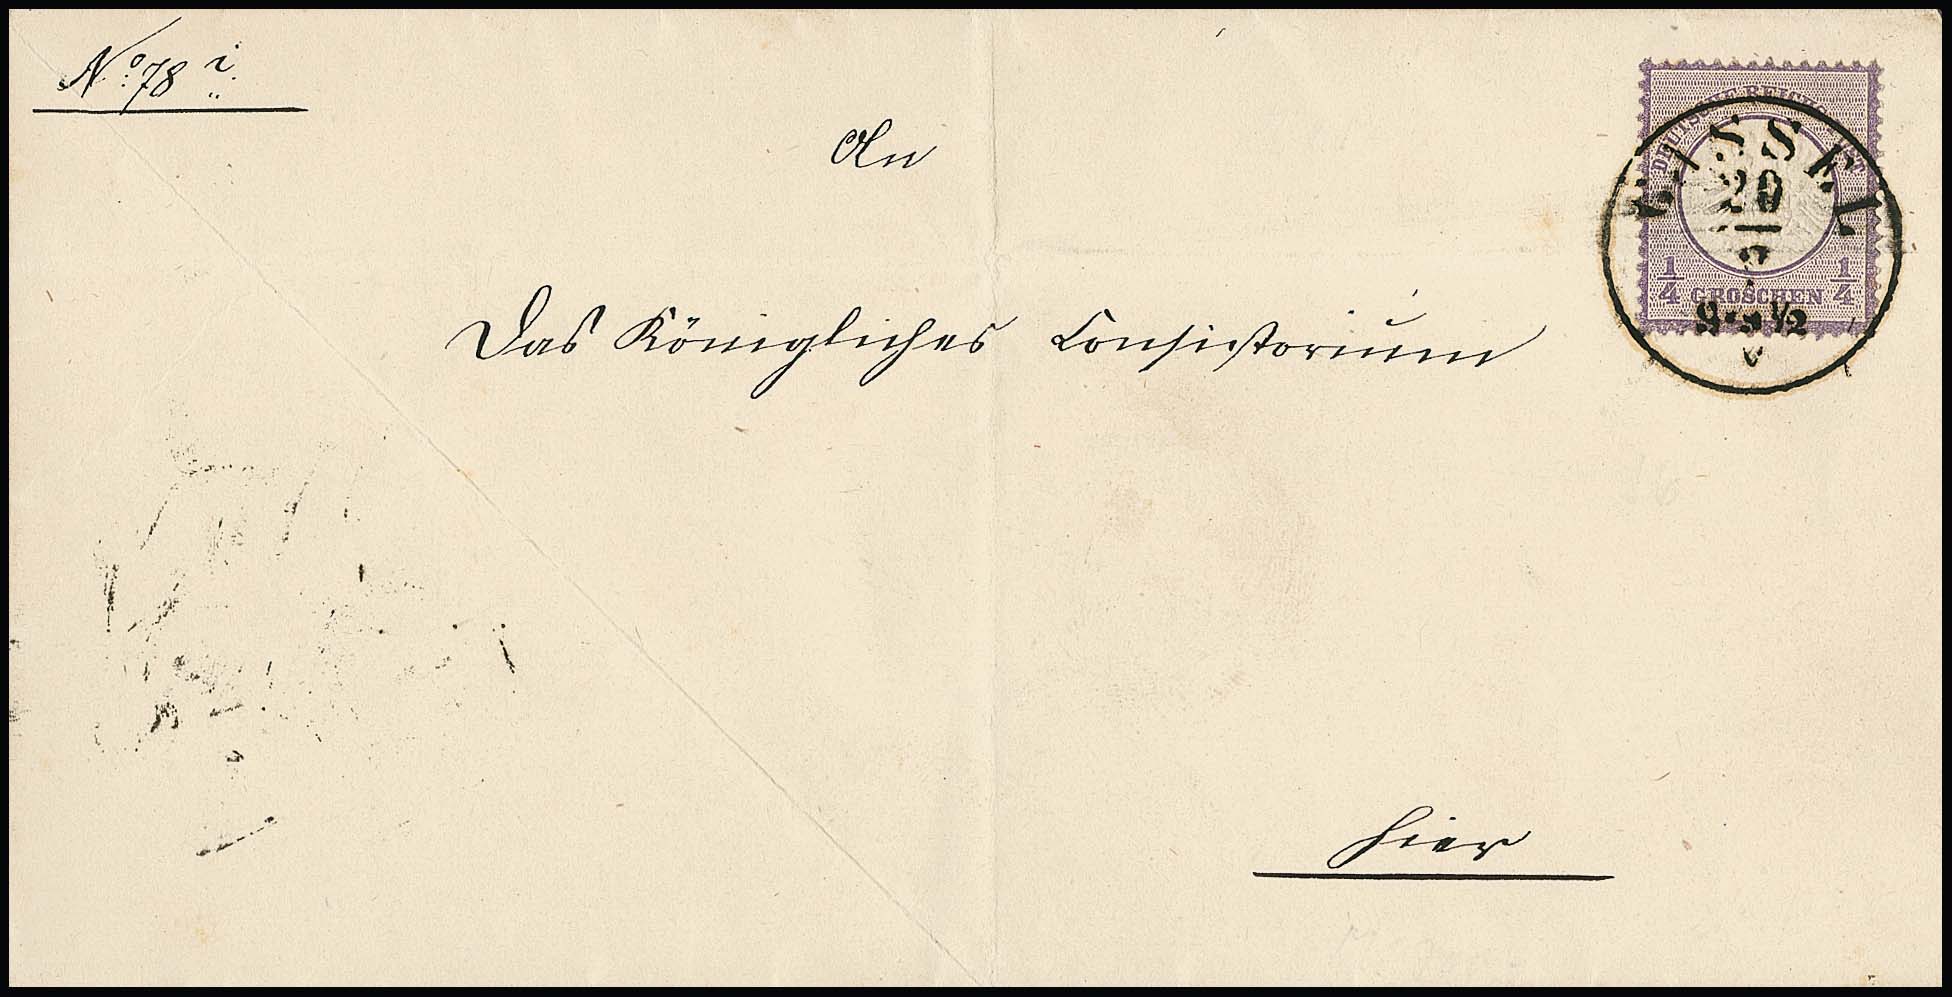 No. 78 i.
An
Das Königliches Consistorium
hier
DEUTSCHE REICHS
1/4 GROSCHEN 1/4
CASSEL
20
9
8-8 1/2